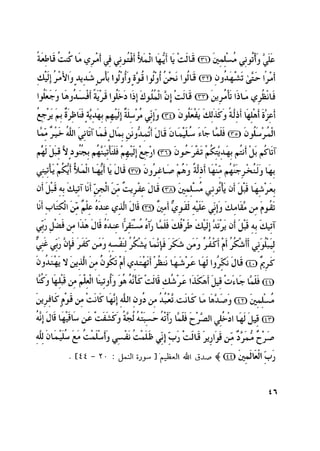 عَلَيَّ وَأْتُونِي مُسْلِمِينَ ﴿٣١﴾ قَالَتْ يَا أَيُّهَا الْمَلَأُ أَفْتُونِي فِي أَمْرِي مَا كُنتُ قَاطِعَةً
أَمْرًا حَتَّىٰ تَشْهَدُونِ ﴿٣٢﴾ قَالُوا نَحْنُ أُوْلُوا قُوَّةٍ وَأُوْلُوا بَأْسٍ شَدِيدٍ وَالْأَمْرُ إِلَيْكِ
فَانظُرِي مَاذَا تَأْمُرِينَ ﴿٣٣﴾ قَالَتْ إِنَّ الْمُلُوكَ إِذَا دَخَلُوا قَرْيَةً أَفْسَدُوهَا وَجَعَلُوا
أَعِزَّةَ أَهْلِهَا أَذِلَّةً وَكَذَلِكَ يَفْعَلُونَ ﴿٣٤﴾ وَإِنِّي مُرْسِلَةٌ إِلَيْهِم بِهَدِيَّةٍ فَنَاظِرَةٌ بِمَ يَرْجِعُ
الْمُرْسَلُونَ ﴿٣٥﴾ فَلَمَّا جَاءَ سُلَيْمَانَ قَالَ أَتُمِدُّونَنِ بِمَالٍ فَمَا آتَانِيَ اللَّهُ خَيْرٌ مِّمَّا
آتَاكُم بَلْ أَنتُم بِهَدِيَّتِكُمْ تَفْرَحُونَ ﴿٣٦﴾ ارْجِعْ إِلَيْهِمْ فَلَنَأْتِيَنَّهُم بِجُنُودٍ لَّا قِبَلَ لَهُم
بِهَا وَلَنُخْرِجَنَّهُم مِّنْهَا أَذِلَّةً وَهُمْ صَاغِرُونَ ﴿٣٧﴾ قَالَ يَا أَيُّهَا الْمَلَأُ أَيُّكُمْ يَأْتِينِي
بِعَرْشِهَا قَبْلَ أَن يَأْتُونِي مُسْلِمِينَ ﴿٣٨﴾ قَالَ عِفْرِيتٌ مِّنَ الْجِنِّ أَنَا آتِيكَ بِهِ قَبْلَ أَن
تَقُومَ مِن مَّقَامِكَ وَإِنِّي عَلَيْهِ لَقَوِيٌّ أَمِينٌ ﴿٣٩﴾ قَالَ الَّذِي عِندَهُ عِلْمٌ مِّنَ الْكِتَابِ أَنَا
آتِيكَ بِهِ قَبْلَ أَن يَرْتَدَّ إِلَيْكَ طَرْفُكَ فَلَمَّا رَآهُ مُسْتَقِرًّا عِندَهُ قَالَ هَذَا مِن فَضْلِ رَبِّي
لِيَبْلُوَنِي أَأَشْكُرُ أَمْ أَكْفُرُ وَمَن شَكَرَ فَإِنَّمَا يَشْكُرُ لِنَفْسِهِ وَمَن كَفَرَ فَإِنَّ رَبِّي غَنِيٌّ
كَرِيمٌ ﴿٤٠﴾ قَالَ نَكِّرُوا لَهَا عَرْشَهَا نَنظُرْ أَتَهْتَدِي أَمْ تَكُونُ مِنَ الَّذِينَ لَا يَهْتَدُونَ
﴿٤١﴾ فَلَمَّا جَاءَتْ قِيلَ أَهَكَذَا عَرْشُكِ قَالَتْ كَأَنَّهُ هُوَ وَأُوتِينَا الْعِلْمَ مِن قَبْلِهَا وَكُنَّا
مُسْلِمِينَ ﴿٤٢﴾ وَصَدَّهَا مَا كَانَت تَّعْبُدُ مِن دُونِ اللَّهِ إِنَّهَا كَانَتْ مِن قَوْمٍ كَافِرِينَ
﴿٤٣﴾ قِيلَ لَهَا ادْخُلِي الصَّرْحَ فَلَمَّا رَأَتْهُ حَسِبَتْهُ لُجَّةً وَكَشَفَتْ عَن سَاقَيْهَا قَالَ إِنَّهُ
صَرْحٌ مُّمَرَّدٌ مِّن قَوَارِيرَ قَالَتْ رَبِّ إِنِّي ظَلَمْتُ نَفْسِي وَأَسْلَمْتُ مَعَ سُلَيْمَانَ لِلَّهِ
رَبِّ الْعَالَمِينَ ﴿٤٤﴾ صدق الله العظيم [ سورة النمل : ٢٠ - ٤٤ ] .
٤٦